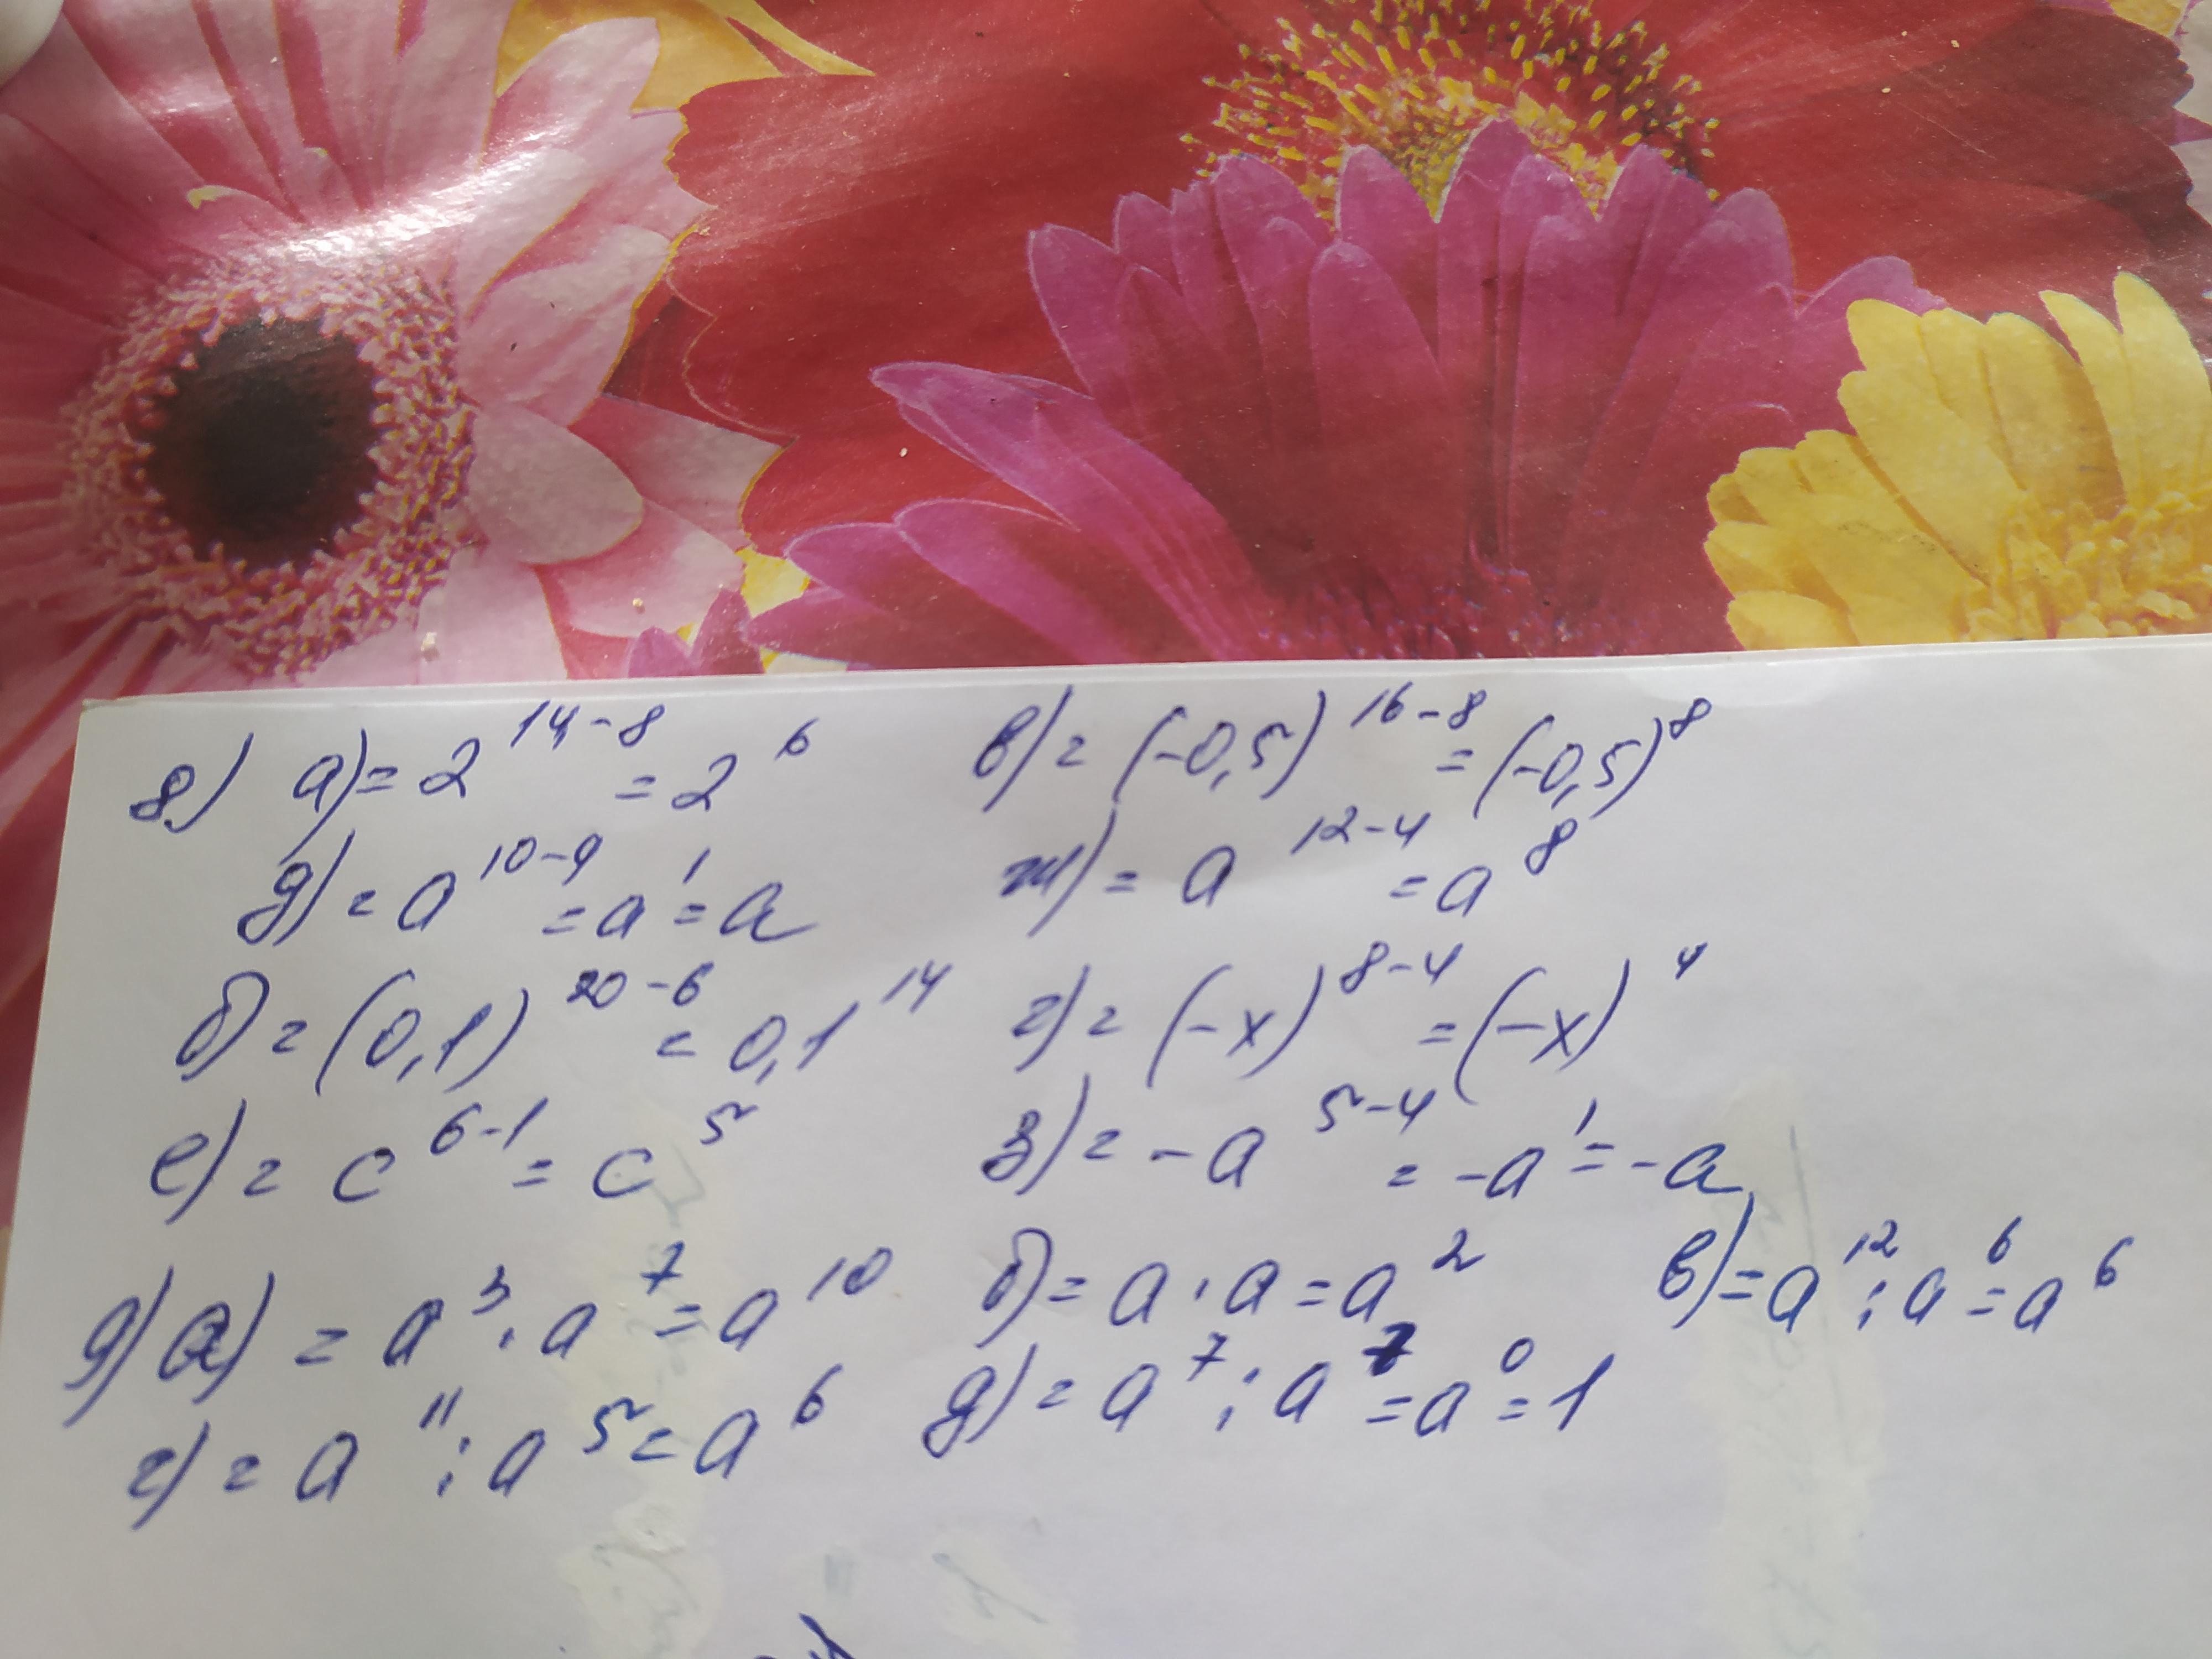 8) а) = 2^14-8 = 2^6 в) = (-0,5)^16-8 = (-0,5)^8
д) = a^10-9 = a^1 = a ж) = a^12-4 = a^8
б) = (0,1)^20-6 = 0,1^14 г) = (-x)^8-4 = (-x)^4
е) = c^6-1 = c^5 з) = -a^5-4 = -a^1 = -a
9) а) = a^3 · a^7 = a^10 б) = a · a = a^2 в) = a^12 : a^6 = a^6
г) = a^11 : a^5 = a^6 д) = a^7 : a^7 = a^0 = 1